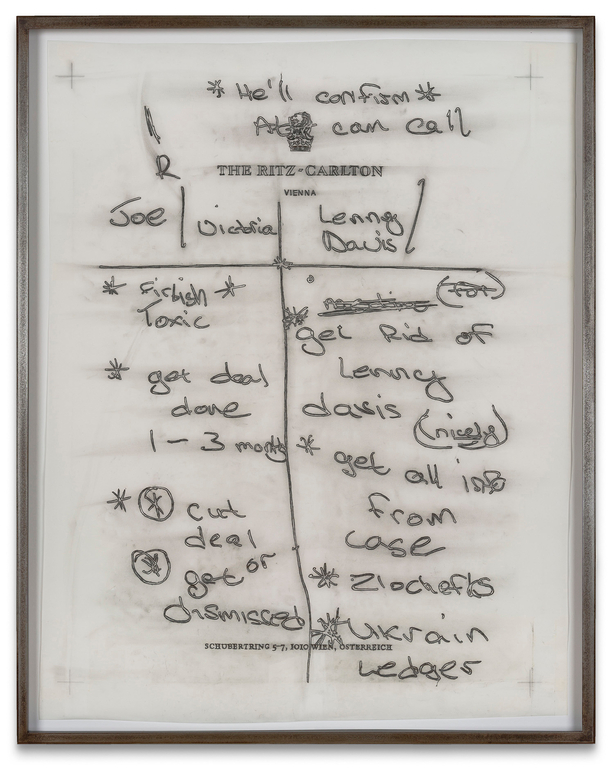 * He'll confirm *
can call
R
THE RITZ-CARLTON
VIENNA
Joe / Victoria
Lenny Davis /
* Firtish *
Toxic
* get Rid of
Lenney
davis (nicely)
* get deal
done
1 - 3 months
* get all info
from
case
* * cut
deal
* get or
dismissed
* Zlochefks
* Ukrain
Ledger
SCHUBERTRING 5-7, 1010 WIEN, ÖSTERREICH